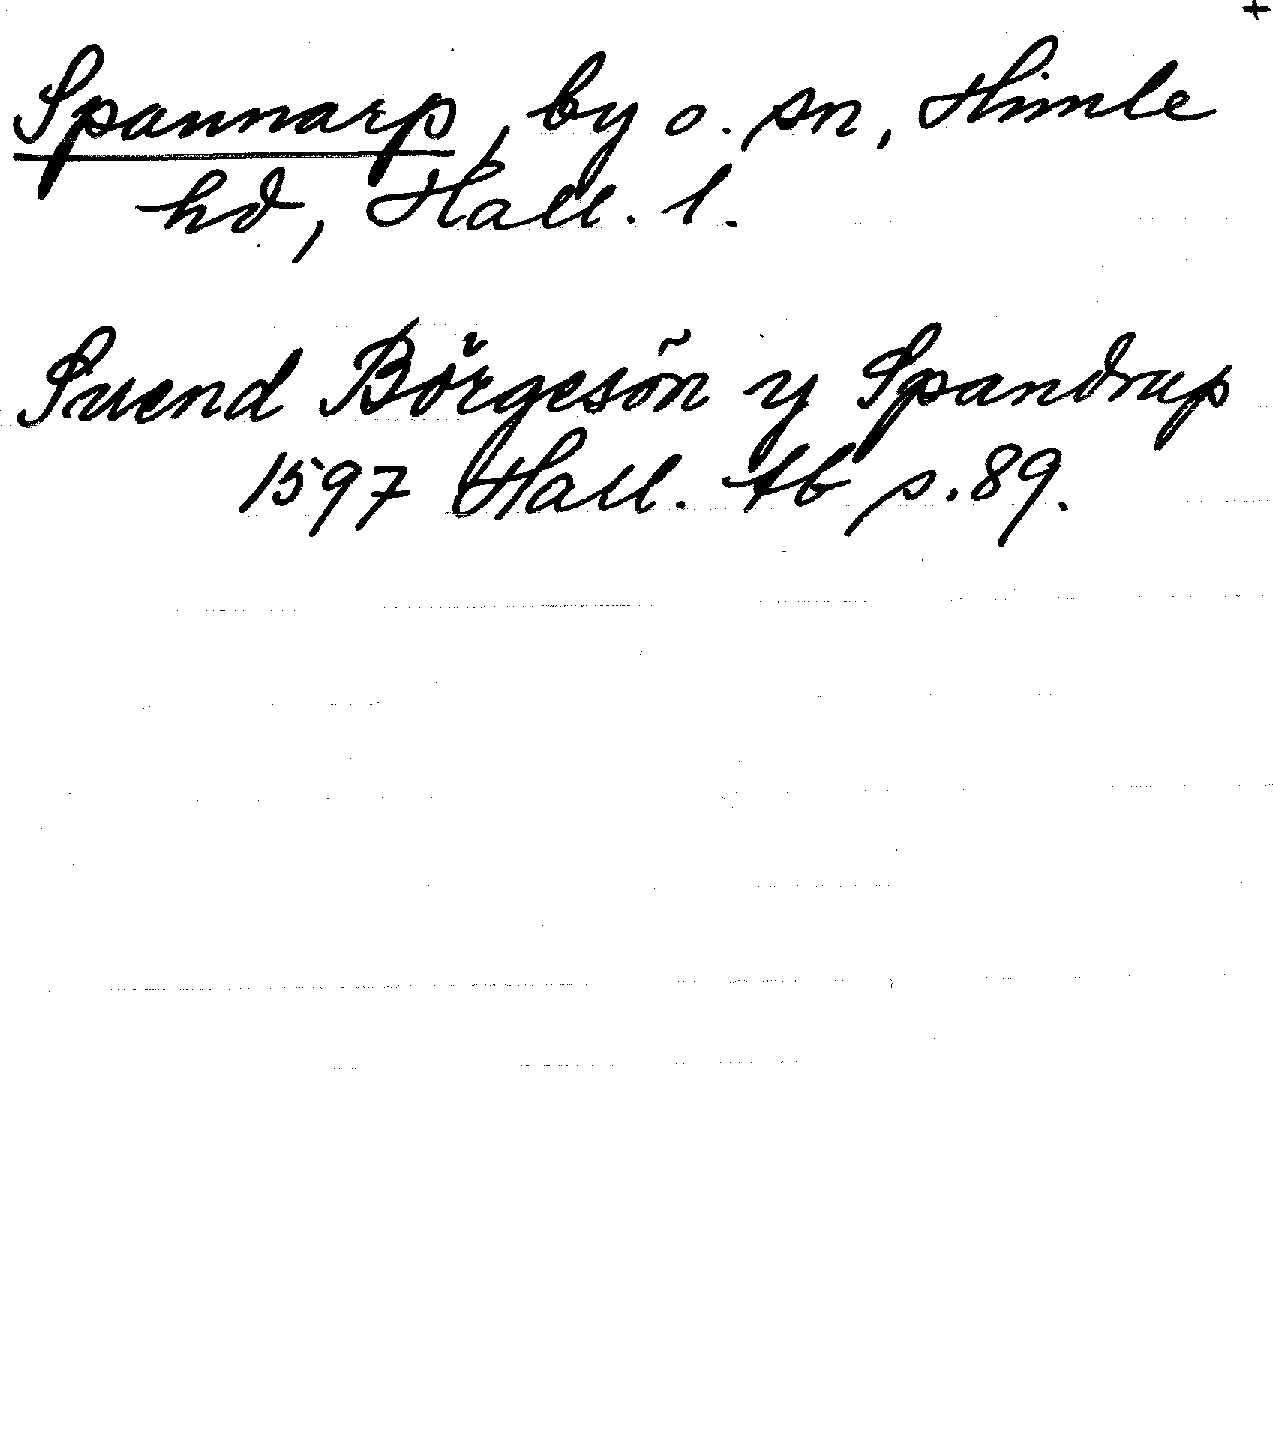 +
Spannarp, by o. sn, Himle
hd, Hall. l.
Svend Börgesön y Spandrup
1597 Hall. tb s. 89.